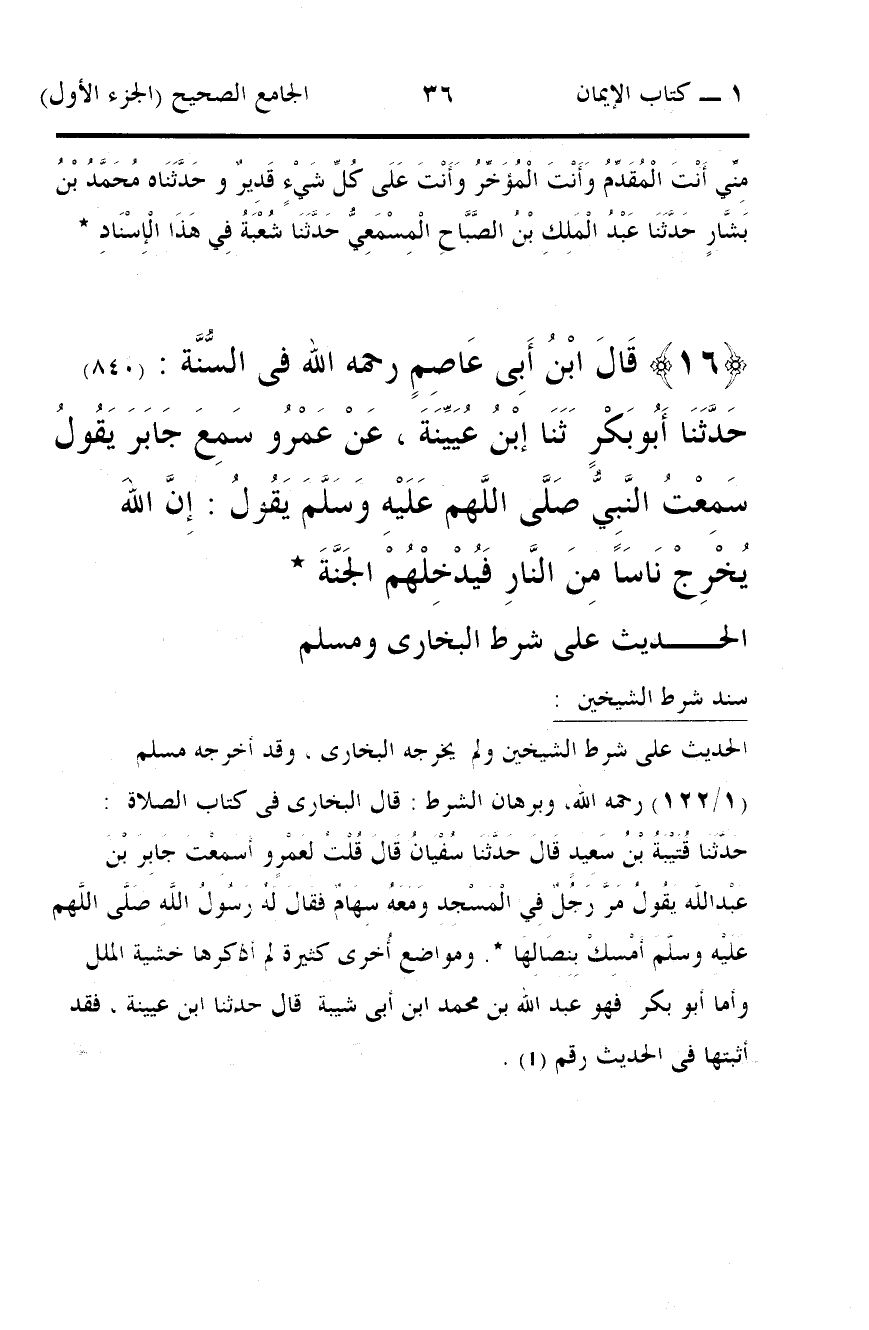 ١ ــ كتاب الإيمان ٣٦ الجامع الصحيح (الجزء الأول)
مِنِّي أَنْتَ الْمُقَدِّمُ وَأَنْتَ الْمُؤَخِّرُ وَأَنْتَ عَلَى كُلِّ شَيْءٍ قَدِيرٌ و حَدَّثَنَاه مُحَمَّدُ بْنُ
بَشَّارٍ حَدَّثَنَا عَبْدُ الْمَلِكِ بْنُ الصَّبَّاحِ الْمِسْمَعِيُّ حَدَّثَنَا شُعْبَةُ فِي هَذَا الْإِسْنَادِ *
﴿١٦﴾ قَالَ ابْنُ أَبِى عَاصِمٍ رحمه الله فى السُّنَّة : (٨٤٠)
حَدَّثَنَا أَبُوبَكْرٍ ثَنَا إبْنُ عُيَيِّنَةَ ، عَنْ عَمْرُو سَمِعَ جَابَرَ يَقُولُ
سَمِعْتُ النَّبِيُّ صَلَّى اللَّهم عَلَيْهِ وَسَلَّمَ يَقُولُ : إِنَّ اللهَ
يُخْرِجُ نَاسَاً مِنَ النَّارِ فَيُدْخِلْهُمْ الجَنَّةَ *
الحـــــديث على شرط البخارى ومسلم
سند شرط الشيخين :
الحديث على شرط الشيخين ولم يخرجه البخارى . وقد أخرجه مسلم
(١٢٢/١) رحمه الله، وبرهان الشرط : قال البخارى فى كتاب الصلاة :
حَدَّثَنَا قُتَيْبَةُ بْنُ سَعِيدٍ قَالَ حَدَّثَنَا سُفْيَانُ قَالَ قُلْتُ لِعَمْرٍو أَسمِعْتَ جَابِرَ بْنَ
عَبْدِاللَّهِ يَقُولُ مَرَّ رَجُلٌ فِي الْمَسْجِدِ وَمَعَهُ سِهَامٌ فقَالَ لَهُ رَسُولُ اللَّهِ صَلَّى اللَّهم
عَلَيْهِ وَسَلَّمَ أَمْسِكْ بِنِصَالِهَا *. ومواضع أُخرى كثيرة لم أذكرها خشية الملل
وأما أبو بكر فهو عبد الله بن محمد ابن أبى شيبة قال حدثنا ابن عيينة ، فقد
أثبتها فى الحديث رقم (١) .